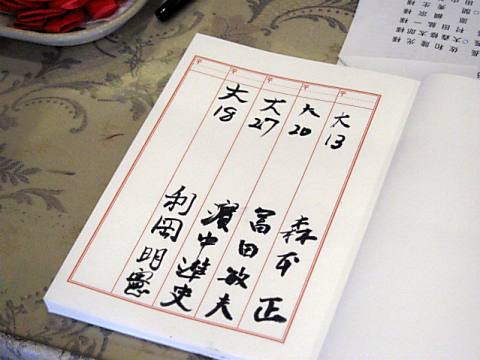 大13
森本 正
大20
冨田敏夫
大27
濵中進史
大18
利岡明憲